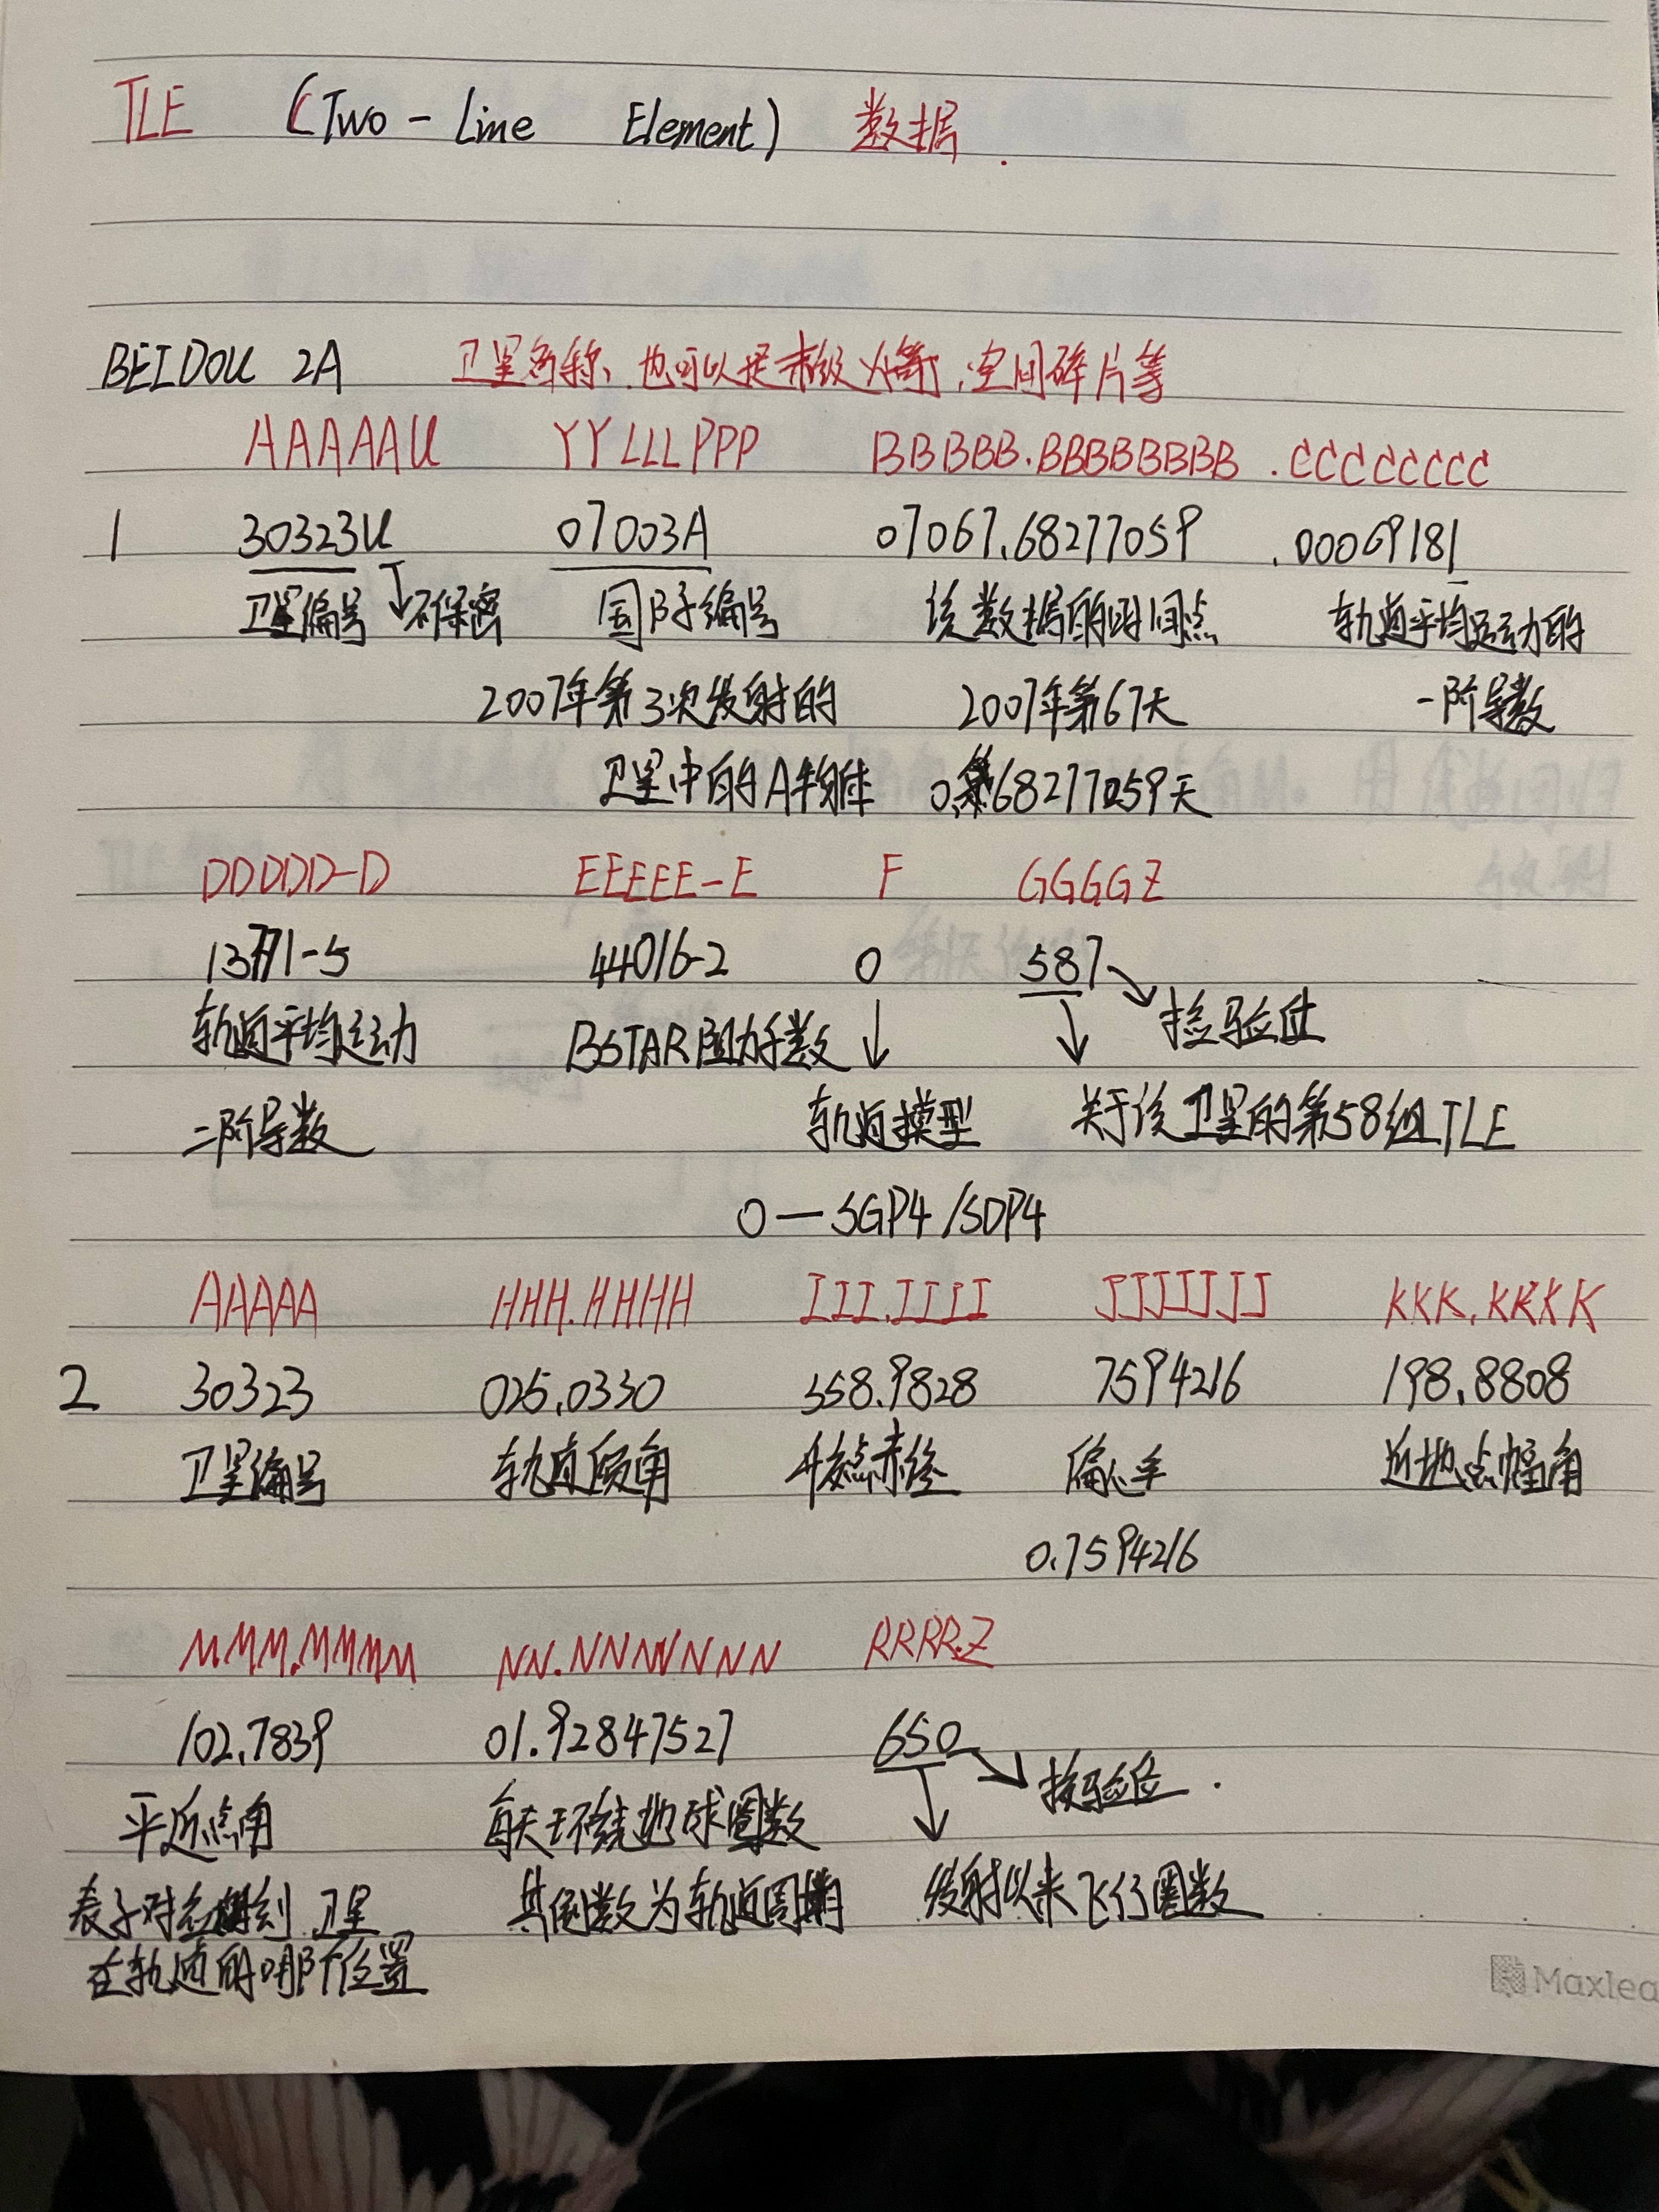 TLE (Two-Line Element) 数据.
BEIDOU 2A 卫星名称、也可以是末级火箭,空间碎片等
AAAAAU YYLLLPPP BBBBB.BBBBBBBB .CCCCCCCC
1 30323U 07003A 07067.68277059 .00069181
卫星编号 不保密 国际编号 该数据的时间点 轨道平均运动的
2007年第3次发射的 2007年第67天 一阶导数
卫星中的A 0.68277059天
DDDDD-D EEEEE-E F GGGGZ
13771-5 44016-2 0 587 检验位
轨道平均运动 BSTAR阻力系数
二阶导数 轨道模型 关于该卫星的第58组TLE
0—SGP4/SDP4
AAAAA HHH.HHHH III.IIII JJJJJJJ KKK.KKKK
2 30323 025.0330 358.9828 7594216 198.8808
卫星编号 轨道倾角 升交点赤经 偏心率 近地点幅角
0.7594216
MMM.MMMM NN.NNNNNNN RRRR.Z
102.7839 01.92847527 650 校验位.
平近点角 每天环绕地球圈数
表示对应时刻 卫星 其倒数为轨道周期 发射以来飞行圈数
在轨道的哪个位置
Maxlea